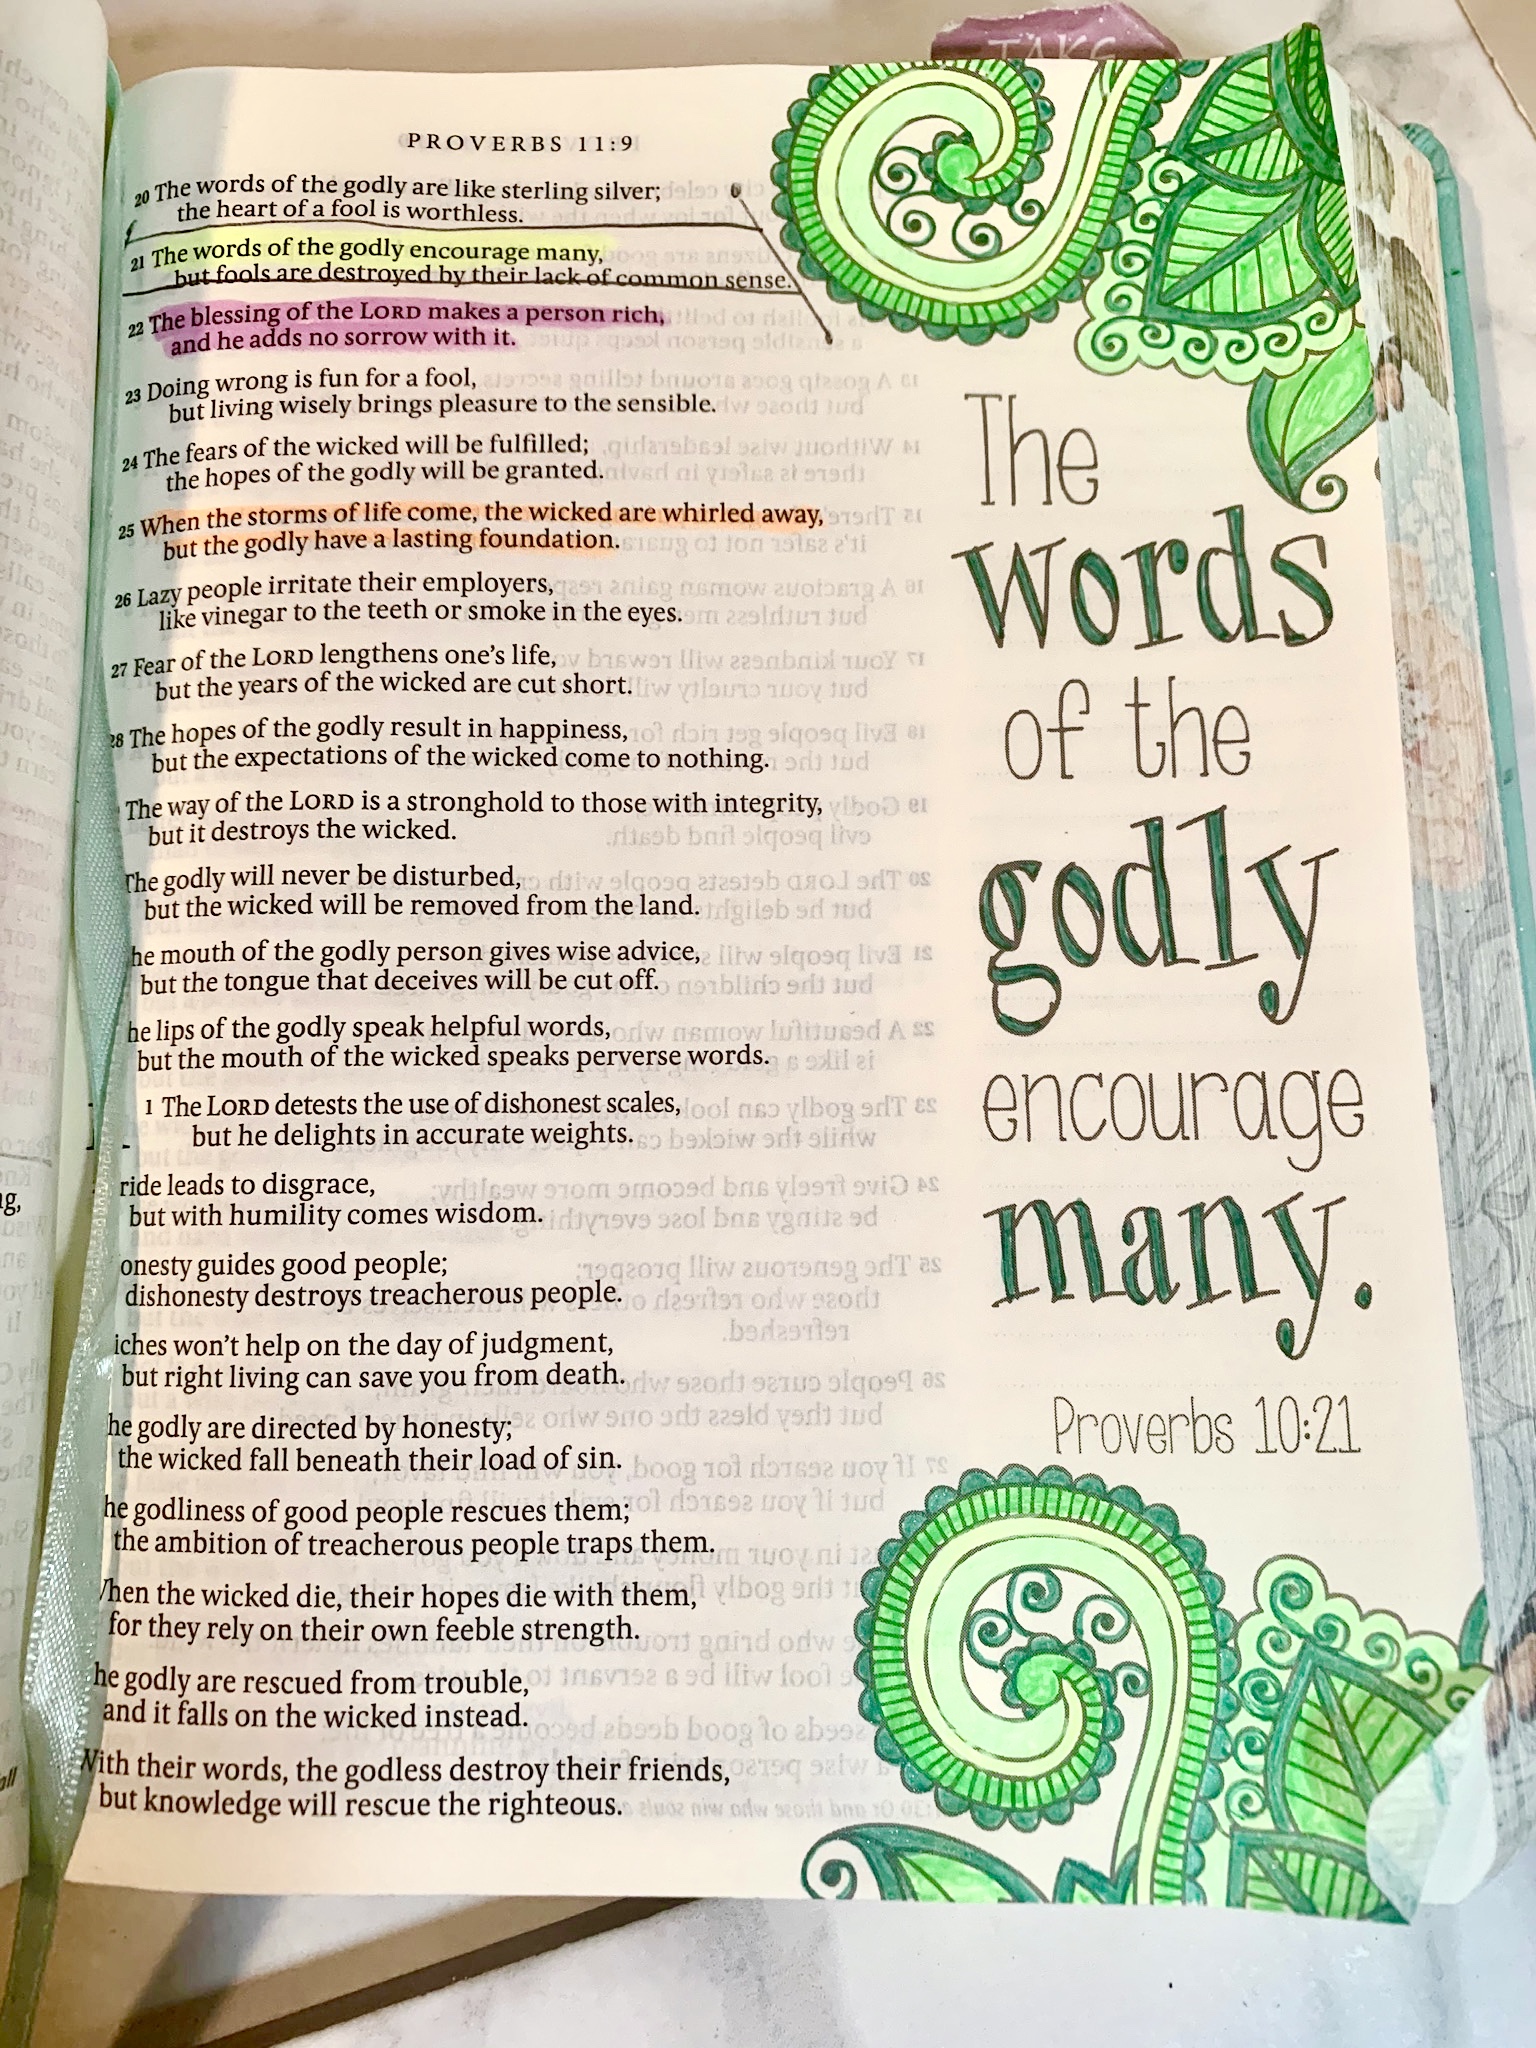 TAKE
PROVERBS 11:9
20 The words of the godly are like sterling silver;
the heart of a fool is worthless.
21 The words of the godly encourage many,
but fools are destroyed by their lack of common sense.
22 The blessing of the LORD makes a person rich,
and he adds no sorrow with it.
23 Doing wrong is fun for a fool,
but living wisely brings pleasure to the sensible.
24 The fears of the wicked will be fulfilled;
the hopes of the godly will be granted.
25 When the storms of life come, the wicked are whirled away,
but the godly have a lasting foundation.
26 Lazy people irritate their employers,
like vinegar to the teeth or smoke in the eyes.
27 Fear of the LORD lengthens one's life,
but the years of the wicked are cut short.
28 The hopes of the godly result in happiness,
but the expectations of the wicked come to nothing.
The way of the LORD is a stronghold to those with integrity,
but it destroys the wicked.
The godly will never be disturbed,
but the wicked will be removed from the land.
he mouth of the godly person gives wise advice,
but the tongue that deceives will be cut off.
he lips of the godly speak helpful words,
but the mouth of the wicked speaks perverse words.
1 The LORD detests the use of dishonest scales,
but he delights in accurate weights.
ride leads to disgrace,
but with humility comes wisdom.
onesty guides good people;
dishonesty destroys treacherous people.
iches won't help on the day of judgment,
but right living can save you from death.
he godly are directed by honesty;
the wicked fall beneath their load of sin.
he godliness of good people rescues them;
the ambition of treacherous people traps them.
When the wicked die, their hopes die with them,
for they rely on their own feeble strength.
he godly are rescued from trouble,
and it falls on the wicked instead.
With their words, the godless destroy their friends,
but knowledge will rescue the righteous.
The
words
of the
godly
encourage
many.
Proverbs 10:21